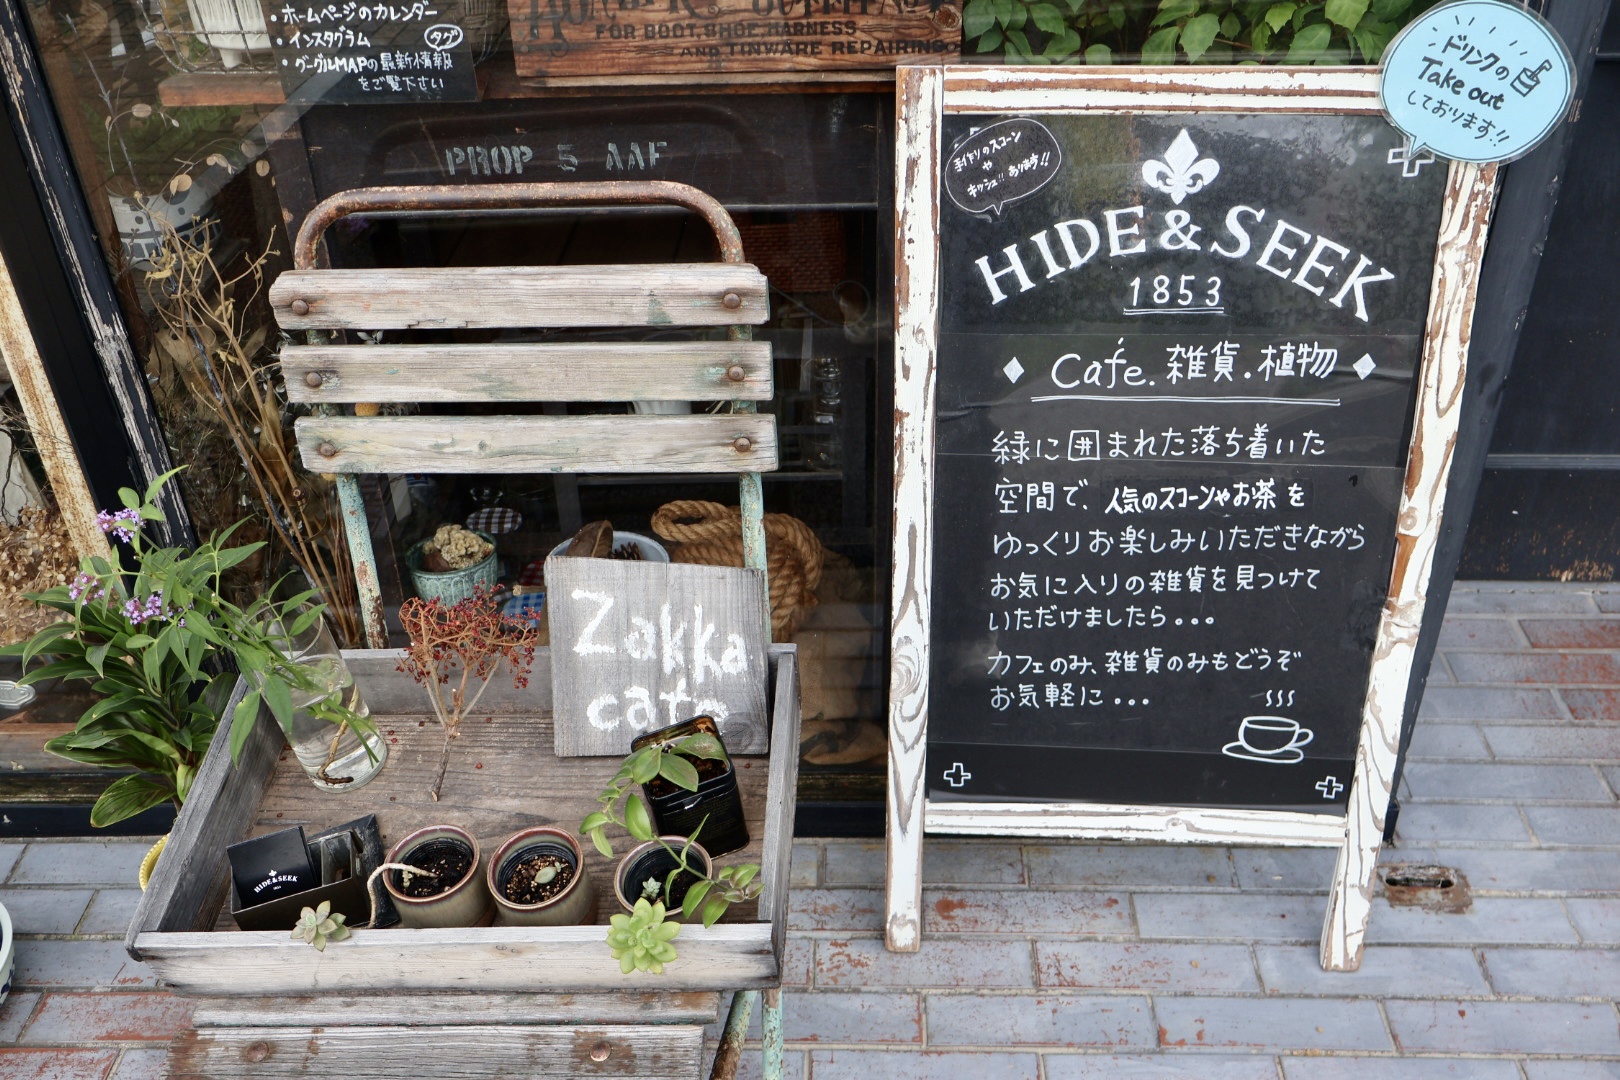 ・ホームページのカレンダー
・インスタグラム タグ
・グーグルMAPの最新情報
をご覧下さい
FOR BOOT, SHOE, HARNESS
AND TINWARE REPAIRING
PROP 5 AAF
Zakka
cafe
HIDE&SEEK
ドリンクの
Take out
しております!!
手作りのスコーン
や
キッシュ!! あります!!
HIDE & SEEK
1853
Café. 雑貨.植物
緑に囲まれた落ち着いた
空間で、人気のスコーンやお茶を
ゆっくりお楽しみいただきながら
お気に入りの雑貨を見つけて
いただけましたら。。。
カフェのみ、雑貨のみもどうぞ
お気軽に...